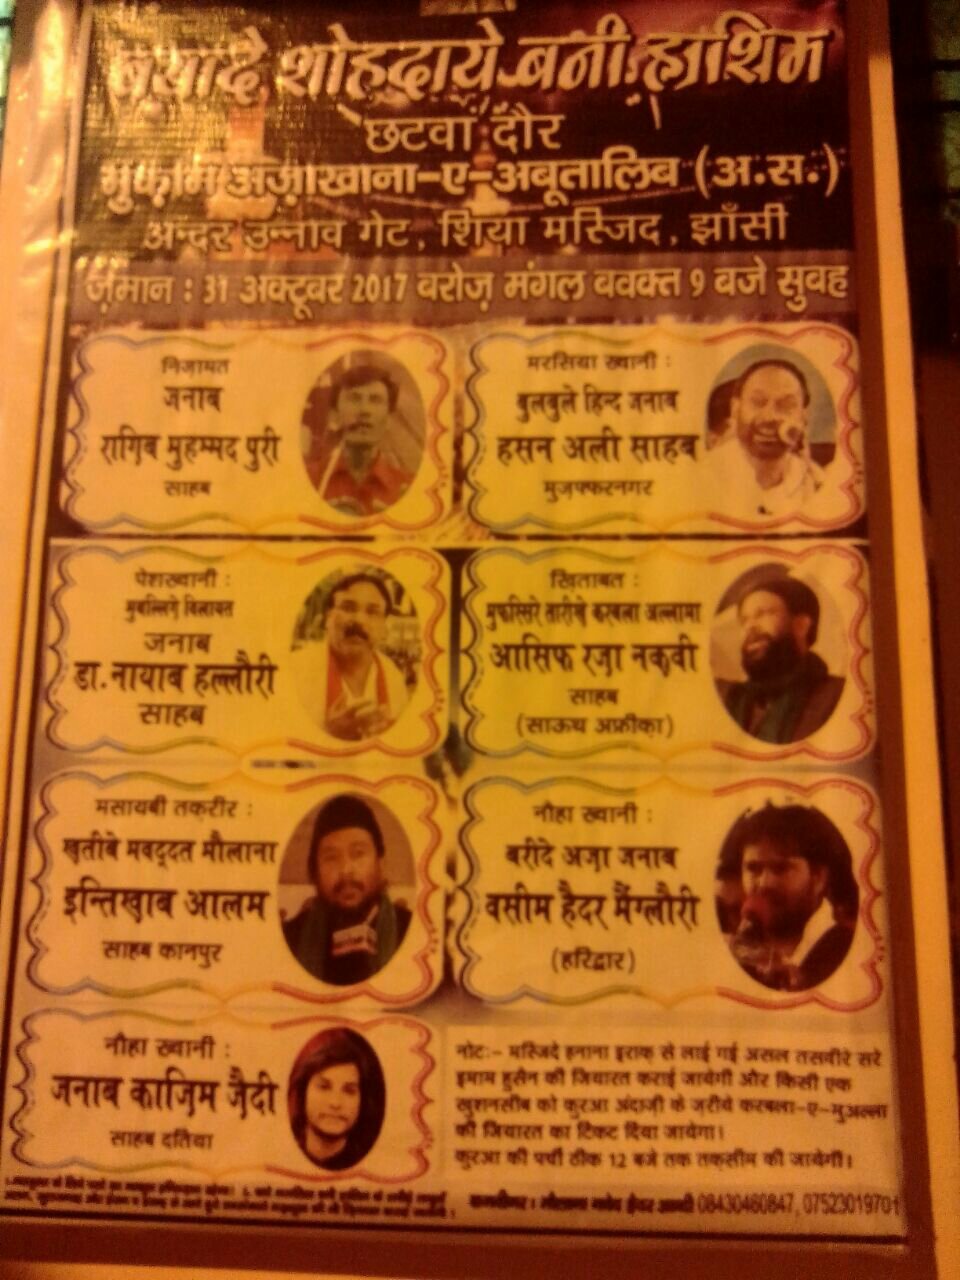 बयादे शोहदाये बनी हाशिम
छटवा दौर
मुक़ाम अज़ाखाना-ए-अबूतालिब (अ.स.)
अन्दर उन्नाव गेट, शिया मस्जिद, झाँसी
ज़मान : 31 अक्टूबर 2017 बरोज़ मंगल बवक्त 9 बजे सुबह
निजामत
जनाब
रागिब मुहम्मद पुरी
साहब
मरसिया ख्वानी :
बुलबुले हिन्द जनाब
हसन अली साहब
मुजफ्फरनगर
पेशख्वानी :
मुबल्लिगे विलायत
जनाब
डा. नायाब हल्लौरी
साहब
खिताबत :
मुफस्सिरे तारीखे करबला अल्लामा
आसिफ रज़ा नक़वी
साहब
(साऊथ अफ्रीका)
मसायबी तक़रीर :
खतीबे मवद्दत मौलाना
इन्तिखाब आलम
साहब कानपुर
नौहा ख्वानी :
बरीदे अज़ा जनाब
वसीम हैदर मैंग्लौरी
(हरिद्वार)
नौहा ख्वानी :
जनाब काज़िम ज़ैदी
साहब दतिया
नोट:- मस्जिदे हनाना इराक़ से लाई गई असल तसवीरे सरे
इमाम हुसैन की जियारत कराई जायेगी और किसी एक
खुशनसीब को कुरआ अंदाज़ी के ज़रीये करबला-ए-मुअल्ला
की जियारत का टिकट दिया जायेगा।
कुरआ की पर्ची ठीक 12 बजे तक तक़सीम की जायेगी।
08430460847, 07523019701